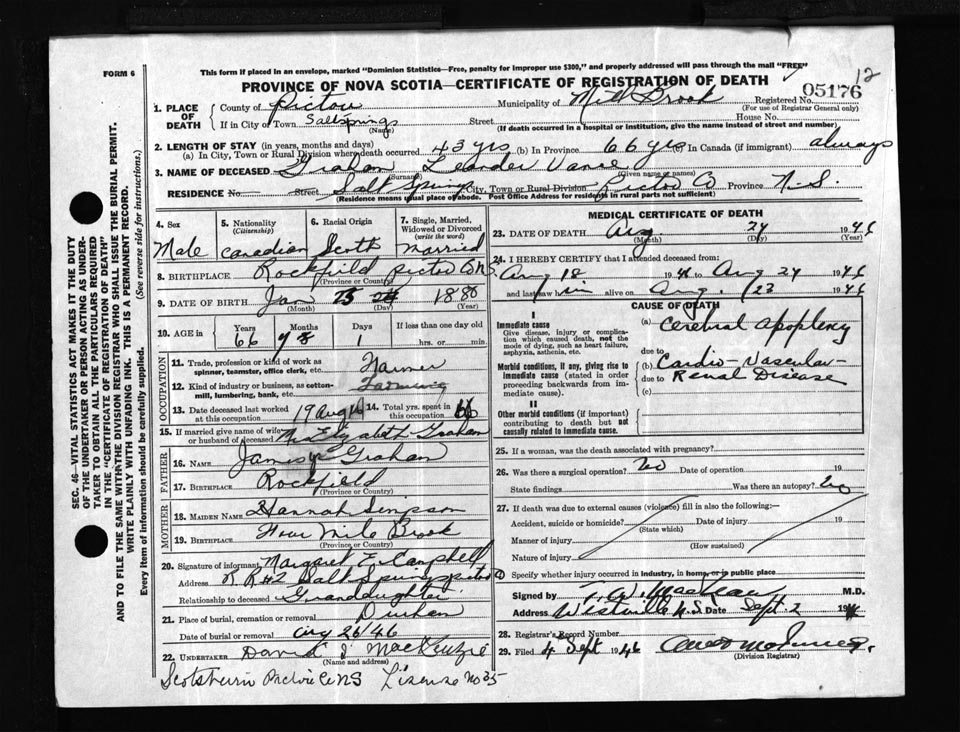 FORM 6
This form if placed in an envelope, marked "Dominion Statistics—Free, penalty for improper use $300," and properly addressed will pass through the mail "FREE"
12
PROVINCE OF NOVA SCOTIA—CERTIFICATE OF REGISTRATION OF DEATH
05176
1. PLACE OF DEATH County of Pictou Municipality of Mill Brook Registered No.
(For use of Registrar General only)
If in City of Town Saltsprings Street House No.
(Name) (If death occurred in a hospital or institution, give the name instead of street and number)
2. LENGTH OF STAY (in years, months and days)
(a) In City, Town or Rural Division where death occurred 43 yrs (b) In Province 66 yrs (c) In Canada (if immigrant) always
3. NAME OF DECEASED Graham Leander Vance
(Surname) (Given name or names)
RESIDENCE No. Street Salt Springs City, Town or Rural Division Pictou Co Province N.S.
(Residence means usual place of abode. Post Office Address for residents in rural parts not sufficient)
4. Sex 5. Nationality (Citizenship) 6. Racial Origin 7. Single, Married, Widowed or Divorced (write the word)
Male Canadian Scotch Married
8. BIRTHPLACE Rockfield Pictou Co N.S.
(Province or Country)
9. DATE OF BIRTH Jan 25 1880
(Month) (Day) (Year)
10. AGE in Years Months Days If less than one day old
66 1 hrs. or min.
OCCUPATION
11. Trade, profession or kind of work as spinner, teamster, office clerk, etc. Farmer
12. Kind of industry or business, as cotton-mill, lumbering, bank, etc. Farming
13. Date deceased last worked at this occupation 19 Aug 14. Total yrs. spent in this occupation 66
15. If married give name of wife or husband of deceased Elizabeth Graham
FATHER
16. NAME James Graham
17. BIRTHPLACE Rockfield
(Province or Country)
MOTHER
18. MAIDEN NAME Hannah Simpson
19. BIRTHPLACE Four Mile Brook
(Province or Country)
20. Signature of informant Margaret E. Campbell
Address R R #2 Salt Springs Pictou
Relationship to deceased Granddaughter
21. Place of burial, cremation or removal Durham
Date of burial or removal Aug 26/46
22. UNDERTAKER David J MacKenzie
(Name and address)
Scotsburn Pictou Co NS Lisense No 35
MEDICAL CERTIFICATE OF DEATH
23. DATE OF DEATH Aug. 24 1946
(Month) (Day) (Year)
24. I HEREBY CERTIFY that I attended deceased from:
Aug 18 1946 to Aug 24 1946
and last saw him alive on Aug. 23 1946
CAUSE OF DEATH
I
Immediate cause
Give disease, injury or complication which caused death, not the mode of dying, such as heart failure, asphyxia, asthenia, etc.
(a) Cerebral Apoplexy
due to
Morbid conditions, if any, giving rise to immediate cause (stated in order proceeding backwards from immediate cause).
(b) Cardio-Vascular-
due to Renal Disease
(c)
II
Other morbid conditions (if important) contributing to death but not causally related to immediate cause.
25. If a woman, was the death associated with pregnancy?
26. Was there a surgical operation? No Date of operation 19
State findings Was there an autopsy? No
27. If death was due to external causes (violence) fill in also the following:—
Accident, suicide or homicide? Date of injury 19
(State which)
Manner of injury
(How sustained)
Nature of injury
Specify whether injury occurred in industry, in home, or in public place
Signed by M.D.
Address Westville N.S. Date Sept. 2 1946
28. Registrar's Record Number
29. Filed 4 Sept 1946
(Division Registrar)
SEC. 46—VITAL STATISTICS ACT MAKES IT THE DUTY
OF THE UNDERTAKER OR PERSON ACTING AS UNDERTAKER TO OBTAIN ALL THE PARTICULARS REQUIRED
IN THE "CERTIFICATE OF REGISTRATION OF DEATH"
AND TO FILE THE SAME WITH THE DIVISION REGISTRAR WHO SHALL ISSUE THE BURIAL PERMIT.
WRITE PLAINLY WITH UNFADING INK. THIS IS A PERMANENT RECORD.
Every item of information should be carefully supplied. (See reverse side for instructions.)